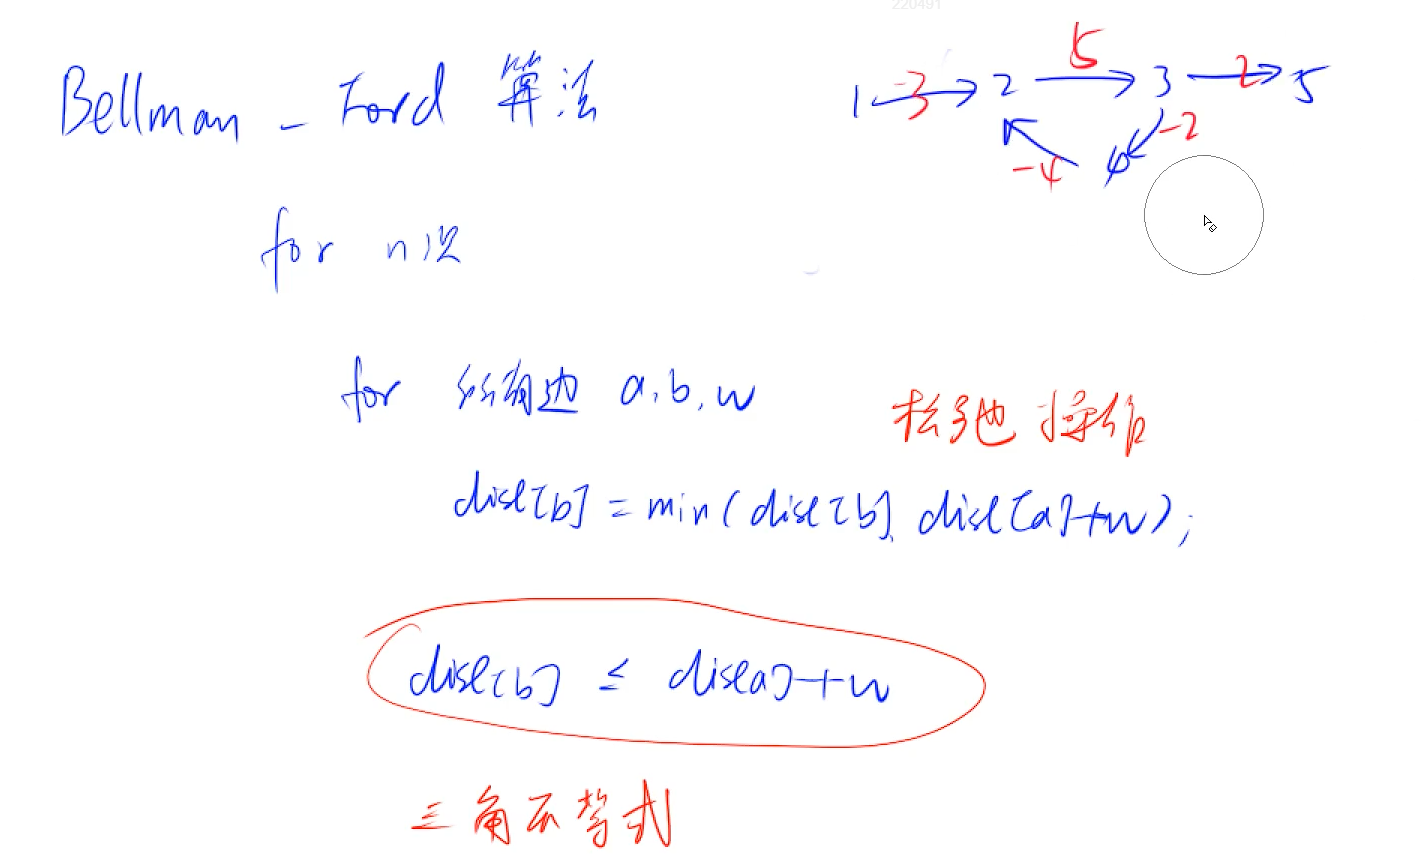 220491
Bellman - Ford 算法
1 -3 2 5 3 2 5
-4 4 -2
for n次
for 所有边 a,b,w
松弛操作
dist[b] = min(dist[b], dist[a]+w);
dist[b] ≤ dist[a]+w
三角不等式